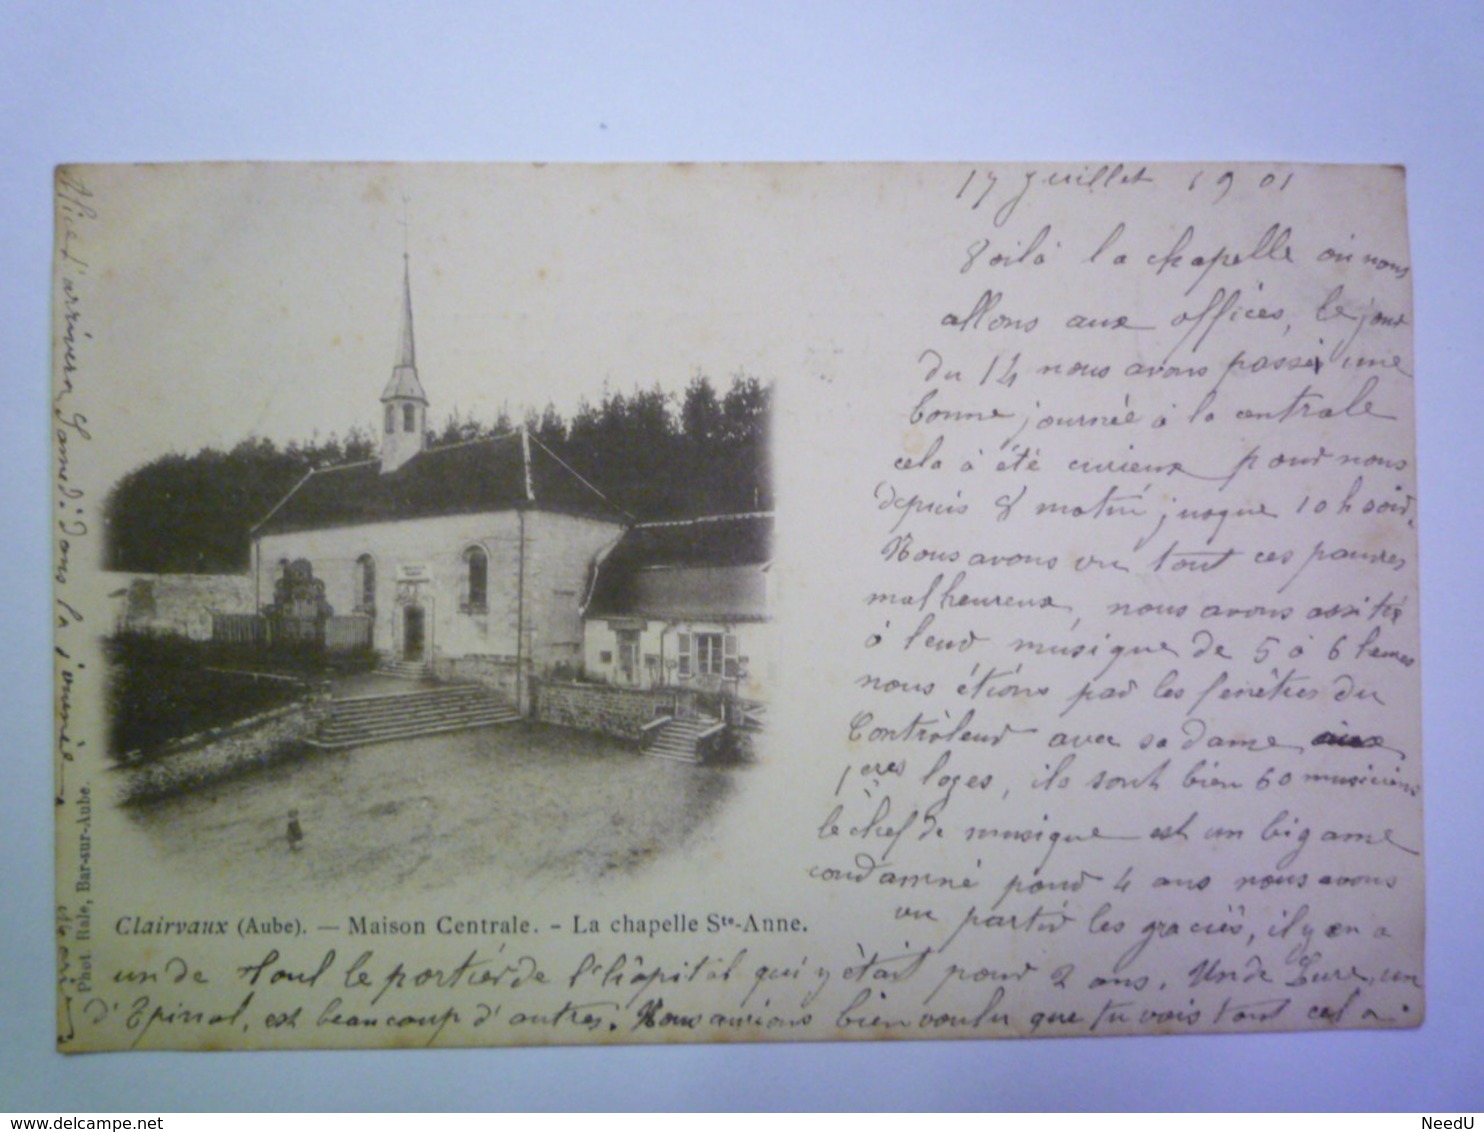 17 Juillet 1901
Voilà la chapelle où nous
allons aux offices, le jour
du 14 nous avons passé une
bonne journée à la centrale
cela a été curieux pour nous
depuis 8 matin jusque 10 h soir.
Nous avons vu tout ces pauvres
malheureux, nous avons assisté
à leur musique de 5 à 6 heures
nous étions par les fenêtres du
Contrôleur avec sa dame aux
1ères loges, ils sont bien 60 musiciens
le chef de musique est un bigame
condamné pour 4 ans nous avons
vu partir les graciés, il y en a
un de Toul le portier de l'hôpital qui y était pour 2 ans. Un de Lure, un
d'Epinal, est beaucoup d'autres. Nous aurions bien voulu que tu vois tout cela.
Alice d'arrivera Samedi dans la
Clairvaux (Aube). — Maison Centrale. - La chapelle Ste-Anne.
Phot. Rale, Bar-sur-Aube.
delcampe.net
NeedU